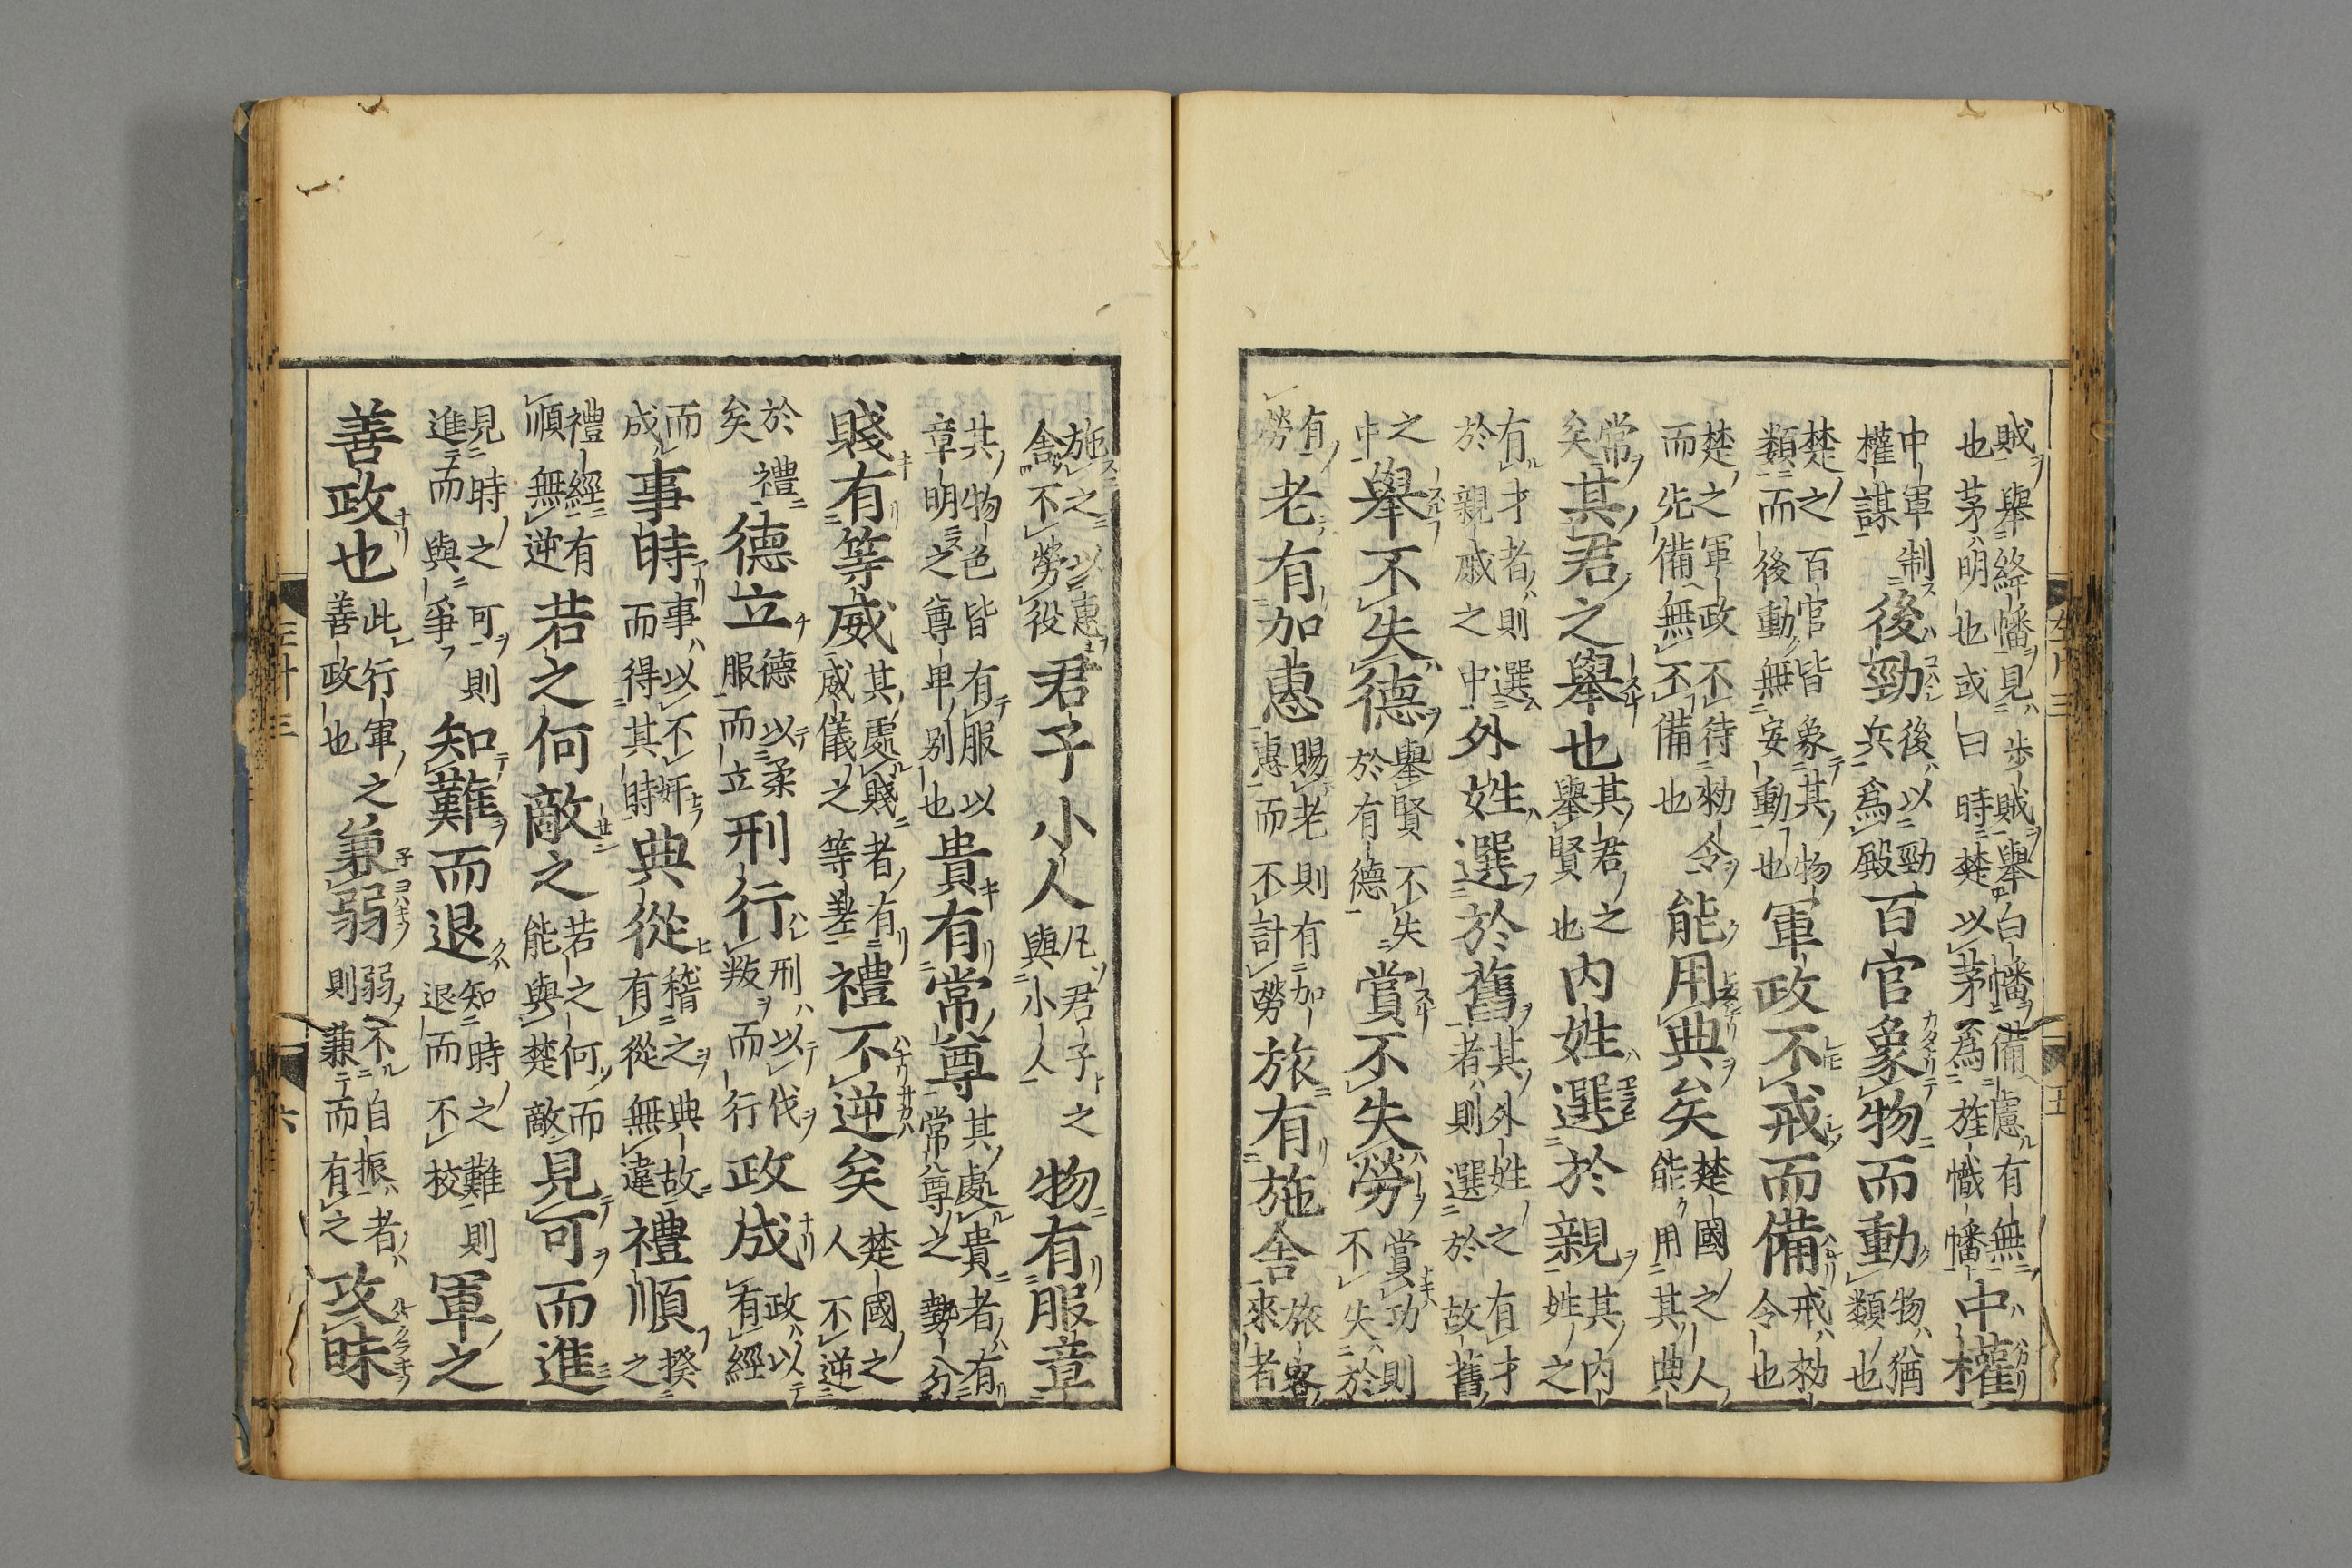 賊舉絳幡見歩賊舉白幡備慮有無
也茅明也或曰時楚以茅爲旌幟幡
中權
中軍制
權謀
後勁
後以勁
兵爲殿
百官象物而動
物猶
類也
楚之百官皆象其物
類而後動無妄動也
軍政不戒而備
戒勑
令也
楚之軍政不待勑令
而先備無不備也
能用典矣
楚國之人
能用其典
常
矣
其君之舉也
其君之
舉賢也
内姓選於親
其内
姓之
有才者則選
於親戚之中
外姓選於舊
其外姓之有才
者則選於故舊
之
中
舉不失德
舉賢不失
於有德
賞不失勞
賞功則
不失於
有
勞
老有加惠
賜老則有加
惠而不計勞
旅有施舍
旅客
來者
施之以惠
舍不勞役
君子小人
凡君子之
與小人
物有服章
其物色皆有服以
章明之尊卑别也
貴有常尊
其處貴者有
常尊之勢分
賤有等威
其處賤者有
威儀之等差
禮不逆矣
楚國之
人不逆
於禮
矣
德立
德以柔
服而立
刑行
刑以伐
叛而行
政成
政以
有經
而
成
事時
事以不奸
而得其時
典從
稽之典故
有從無違
禮順
揆之
禮經有
順無逆
若之何敵之
若之何而
能與楚敵
見可而進
見時之可則
進而與爭
知難而退
知時之難則
退而不校
軍之
善政也
此行軍之
善政也
兼弱
弱不自振者
則兼而有之
攻昧
三十三
六